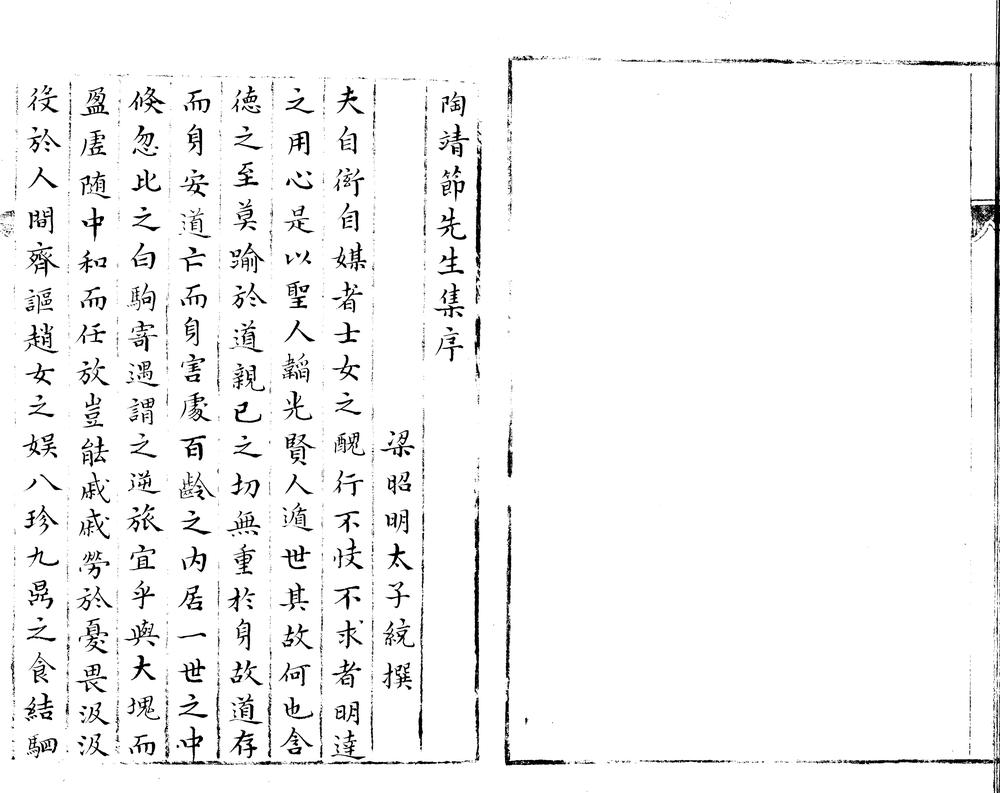 陶靖節先生集序
梁昭明太子統撰
夫自衒自媒者士女之醜行不忮不求者明達
之用心是以聖人韜光賢人遁世其故何也含
德之至莫踰於道親已之切無重於身故道存
而身安道亡而身害處百齡之内居一世之中
倐忽比之白駒寄遇謂之逆旅宜乎與大塊而
盈虚随中和而任放豈能戚戚勞於憂畏汲汲
役於人間齊謳趙女之娱八珍九鼎之食結駟